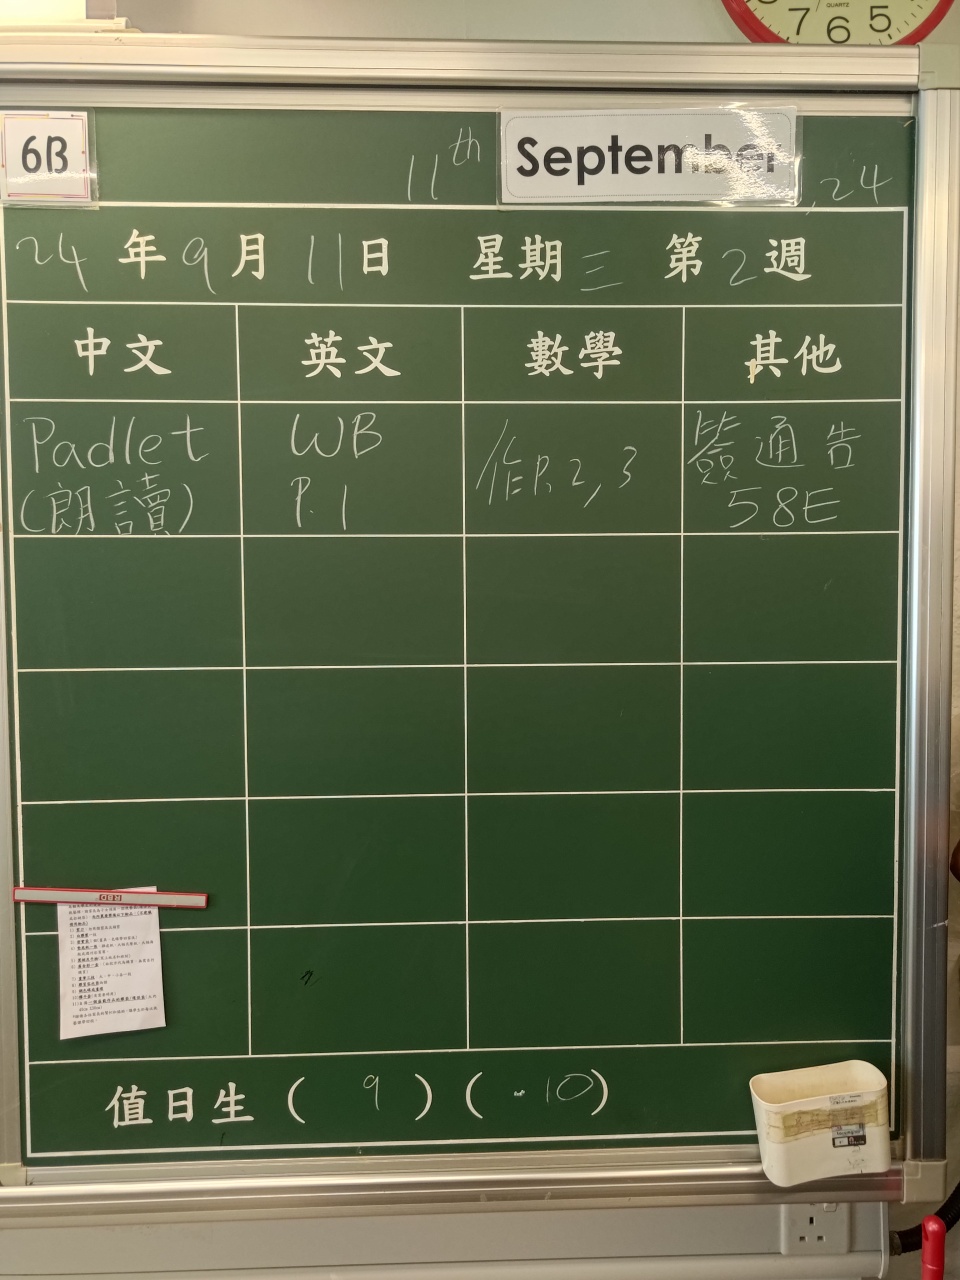 7 6 5
QUARTZ
6B
11th September, 24
24年9月11日 星期三 第2週
中文 英文 數學 其他
Padlet WB 作P.2,3 簽通告
(朗讀) P.1 58E
RBD
值日生(9)(10)